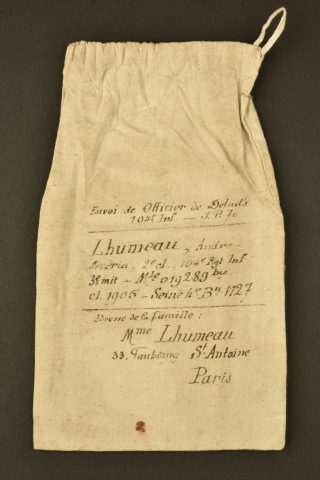 Envoi de Officier de Détails
104e Inf
Lhumeau, André
2e cl. 104e Rgt Inf
3e mit - Mle 019289 bis
cl. 1905 - Seine 4e Bu 1127
Adresse de la famille :
Mme Lhumeau
33, Faubourg St Antoine
Paris